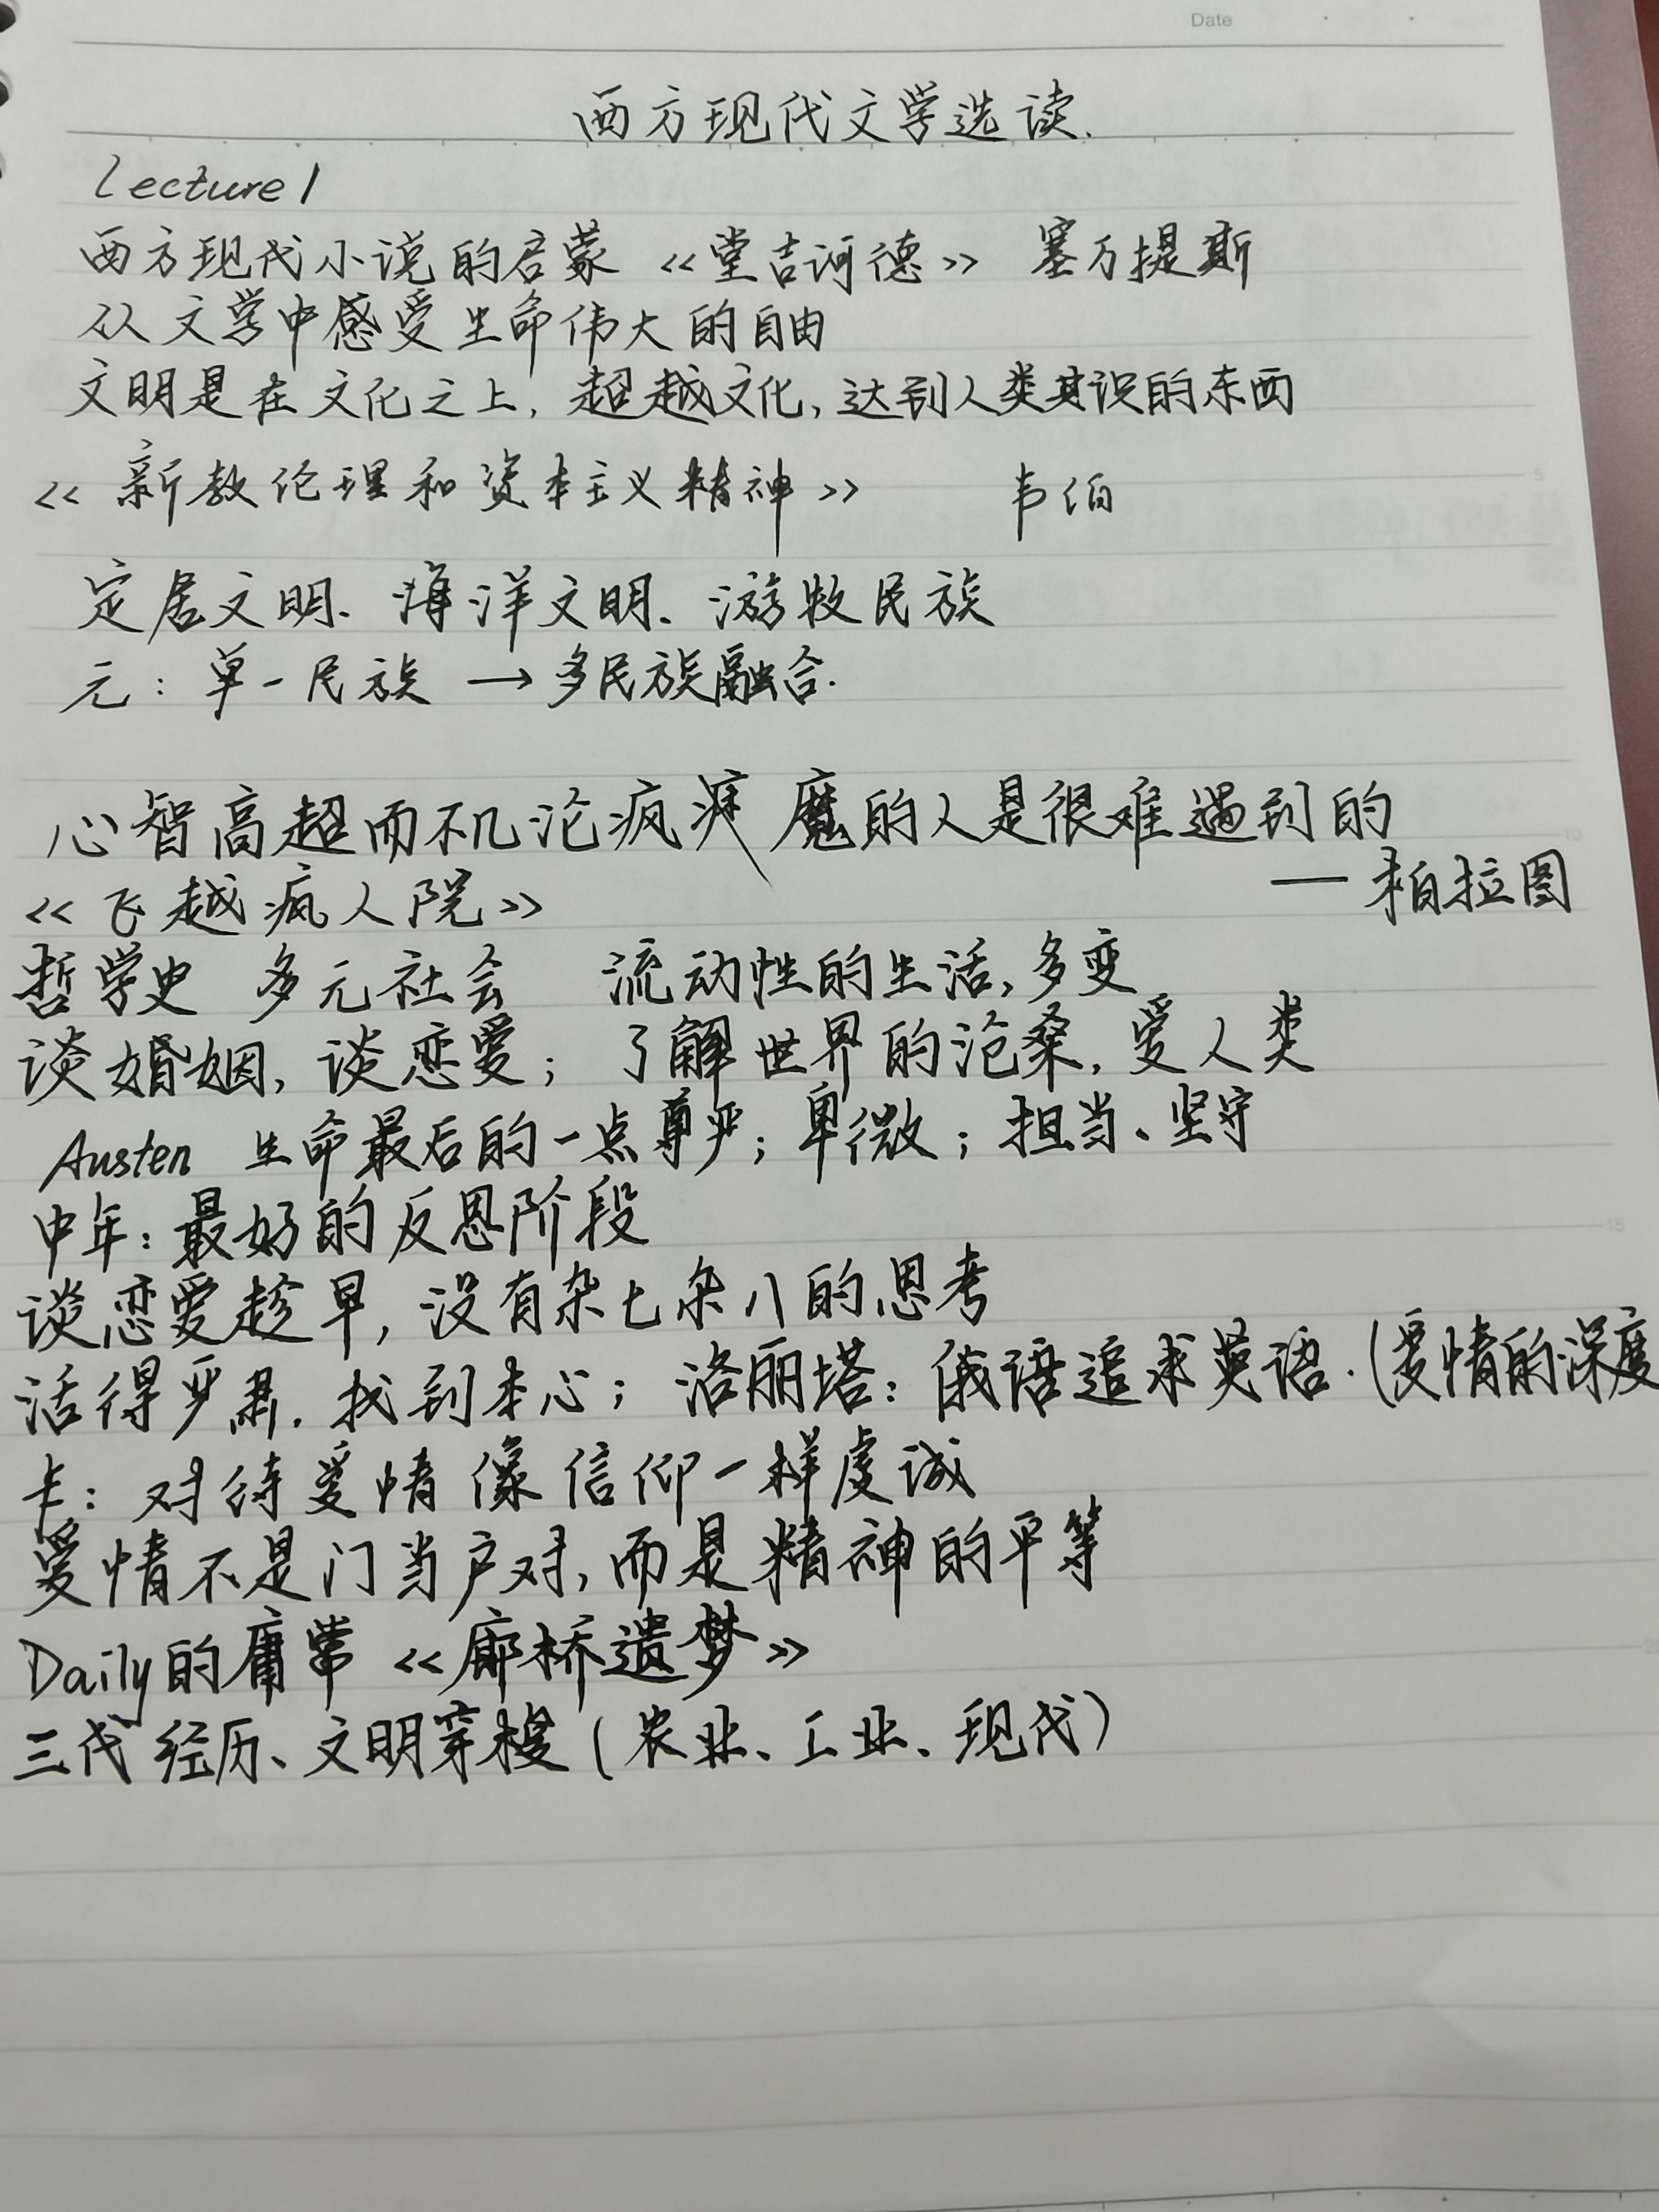 Date
西方现代文学选读.
Lecture 1
西方现代小说的启蒙 《堂吉诃德》 塞万提斯
从文学中感受生命伟大的自由
文明是在文化之上, 超越文化, 达到人类共识的东西
《新教伦理和资本主义精神》 韦伯
定居文明、海洋文明、游牧民族
元: 单一民族 → 多民族融合.
心智高超而不沉沦疯 魔的人是很难遇到的
— 柏拉图
《飞越疯人院》
哲学史 多元社会 流动性的生活, 多变
谈婚姻, 谈恋爱; 了解世界的沧桑, 爱人类
Austen 生命最后的一点尊严; 卑微; 担当、坚守
中年: 最好的反思阶段
谈恋爱趁早, 没有杂七杂八的思考
活得严肃. 找到本心; 洛丽塔: 俄语追求英语. (爱情的深度
卡: 对待爱情像信仰一样虔诚
爱情不是门当户对, 而是精神的平等
Daily的庸常 《廊桥遗梦》
三代经历、文明穿梭 (农业、工业、现代)
5
10
15